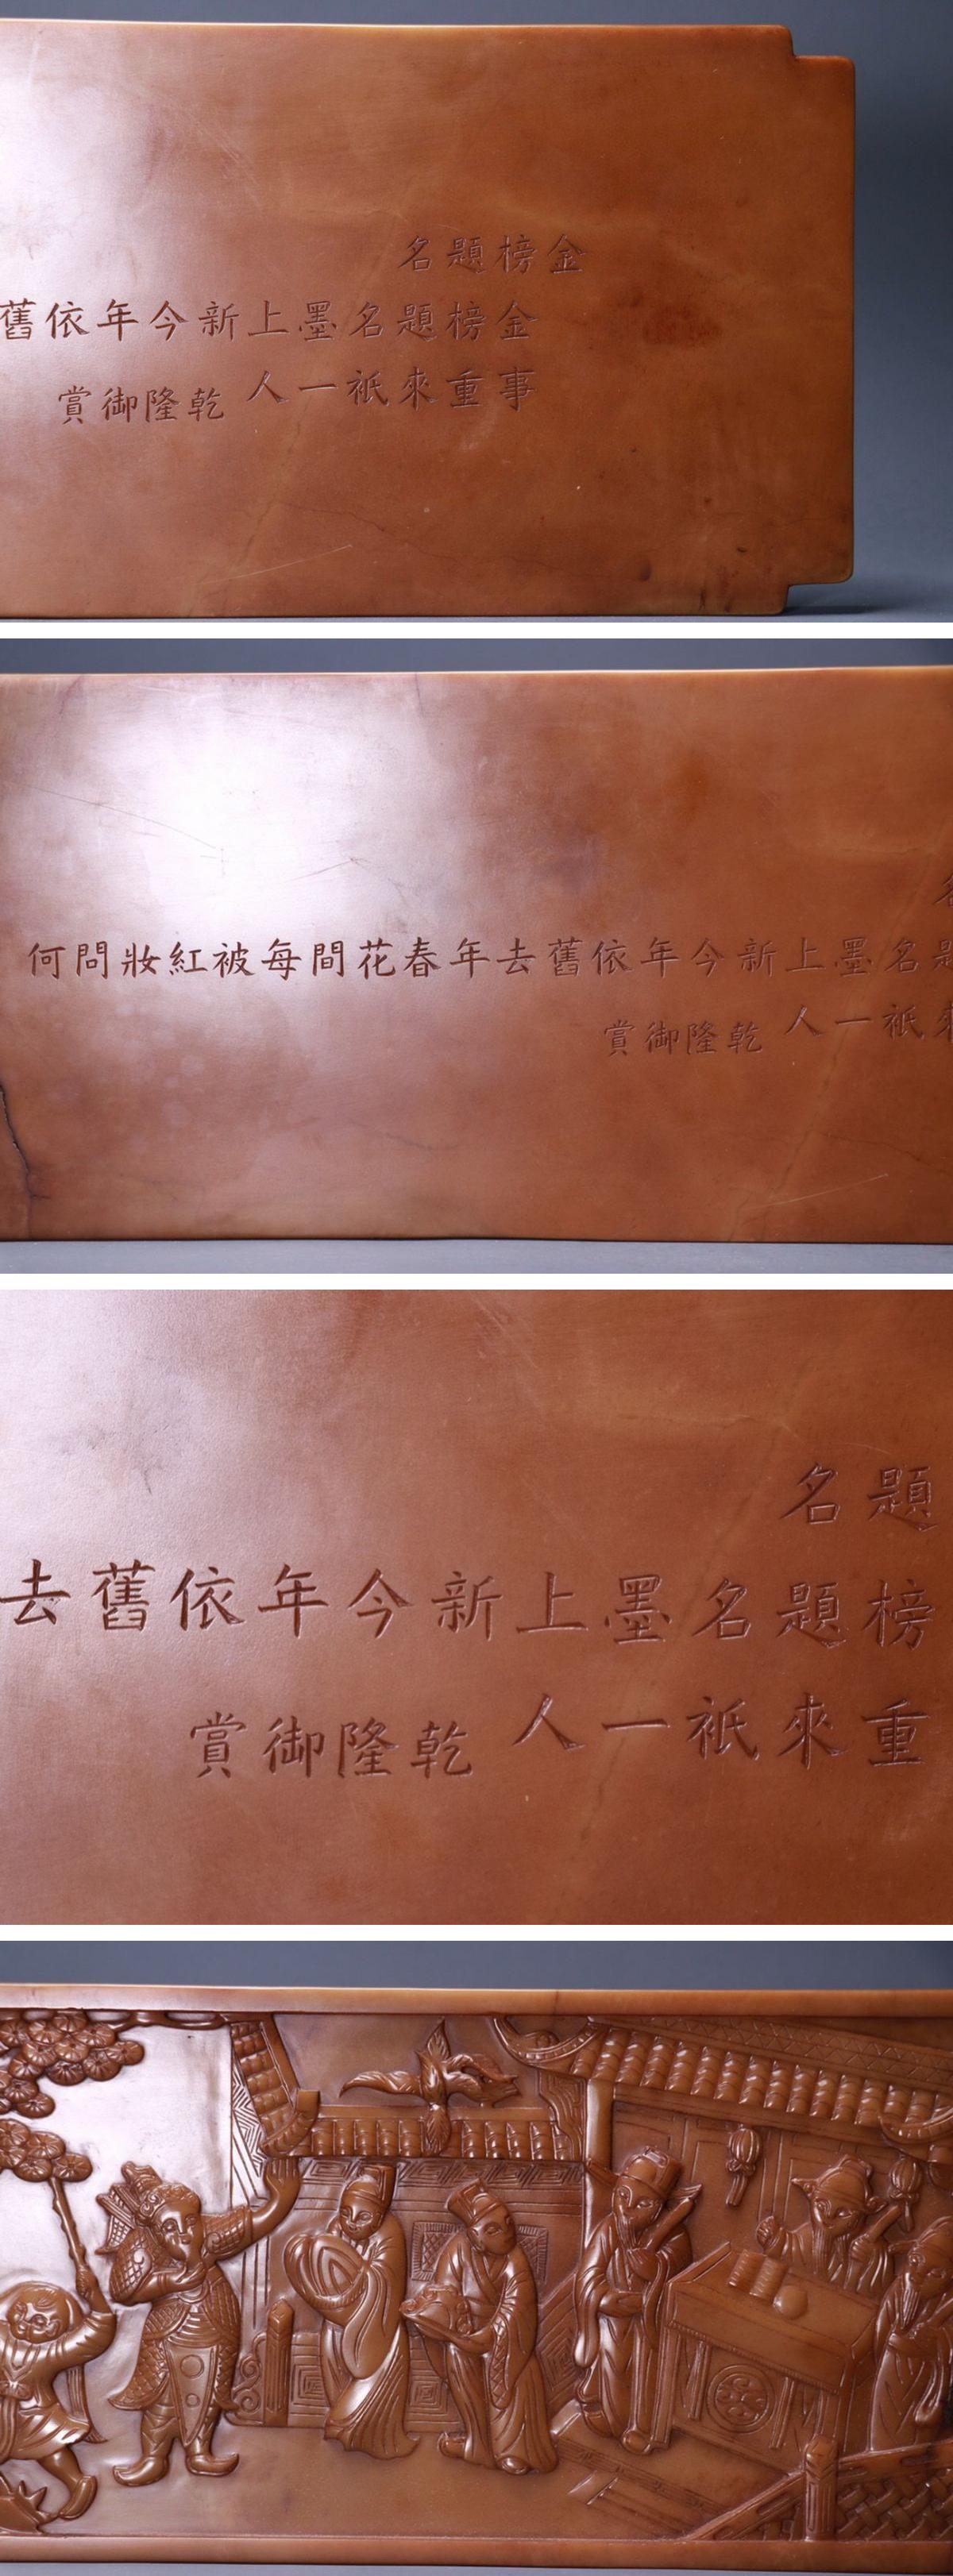 金榜題名
金榜題名墨上新今年依舊
事重來祇一人
乾隆御賞
名
題名墨上新今年依舊去年春花間每被紅妝問何
來祇一人
乾隆御賞
題名
榜題名墨上新今年依舊去
重來祇一人
乾隆御賞